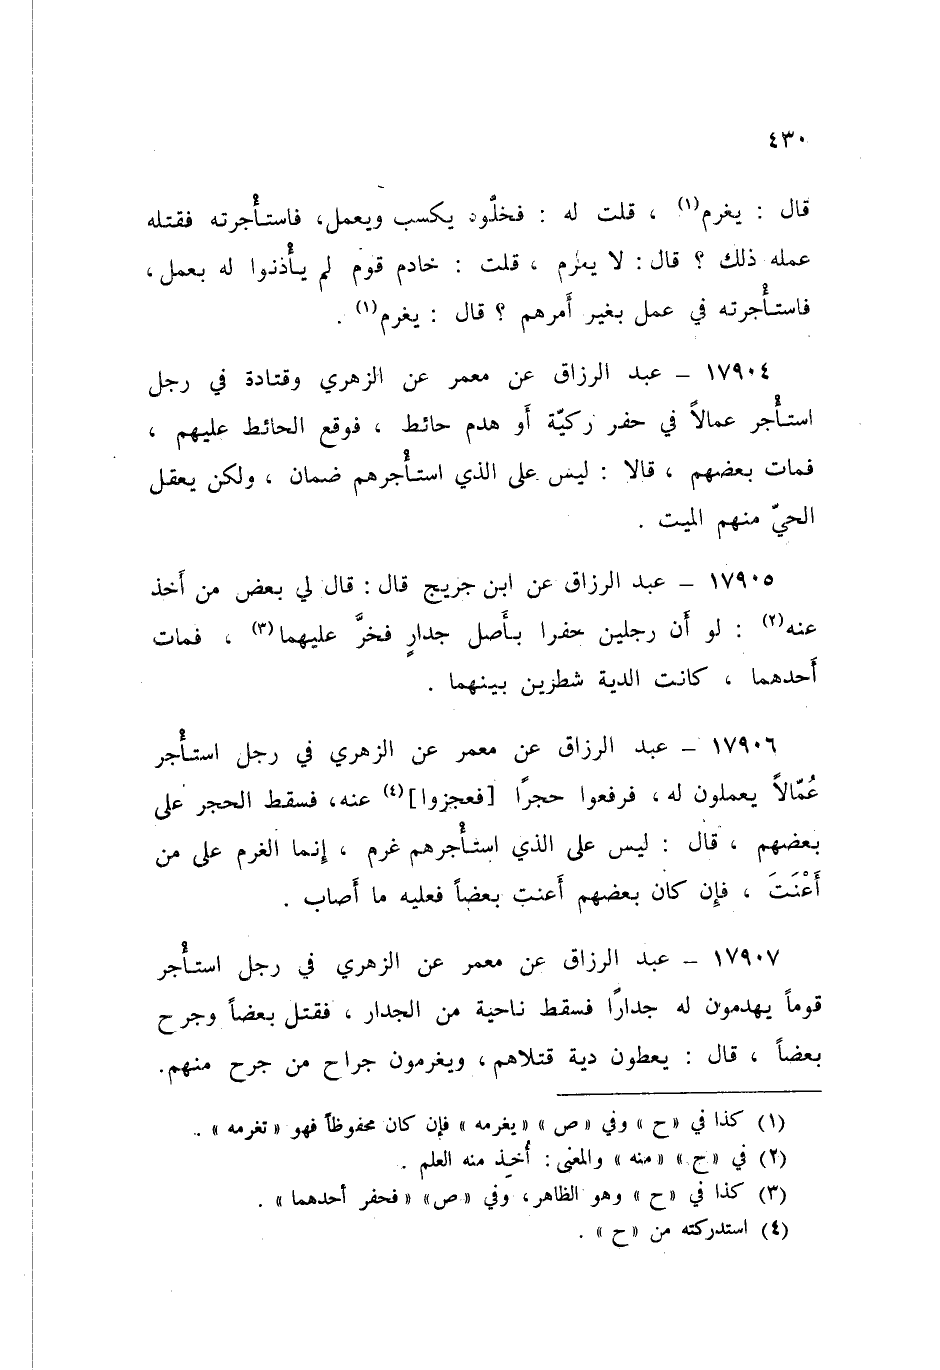 ٤٣٠
قال : يغرم(١) ، قلت له : فخلّوه يكسب ويعمل، فاستأجرته فقتله
عمله ذلك ؟ قال: لا يغرم ، قلت : خادم قوم لم يأذنوا له بعمل،
فاستأجرته في عمل بغير أَمرهم ؟ قال : يغرم(١) .
١٧٩٠٤ – عبد الرزاق عن معمر عن الزهري وقتادة في رجل
استأْجر عمالاً في حفر ركيّة أَو هدم حائط ، فوقع الحائط عليهم ،
فمات بعضهم ، قالا : ليس على الذي استأْجرهم ضمان ، ولكن يعقل
الحيّ منهم الميت .
١٧٩٠٥ – عبد الرزاق عن ابن جريج قال: قال لي بعض من أَخذ
عنه(٢) : لو أَن رجلين حفرا بأَصل جدارٍ فخرَّ عليهما(٣) ، فمات
أَحدهما ، كانت الدية شطرين بينهما .
١٧٩٠٦ – عبد الرزاق عن معمر عن الزهري في رجل استأْجر
عُمّالاً يعملون له ، فرفعوا حجرًا [فعجزوا](٤) عنه، فسقط الحجر على
بعضهم ، قال : ليس على الذي استأْجرهم غرم ، إنما الغرم على من
أَعْنَتَ ، فإن كان بعضهم أَعنت بعضاً فعليه ما أَصاب .
١٧٩٠٧ – عبد الرزاق عن معمر عن الزهري في رجل استأْجر
قوماً يهدمون له جدارًا فسقط ناحية من الجدار ، فقتل بعضاً وجرح
بعضاً ، قال : يعطون دية قتلاهم، ويغرمون جراح من جرح منهم.
(١) كذا في «ح» وفي «ص» «يغرمه» فإن كان محفوظاً فهو «تغرمه» .
(٢) في «ح» «منه» والمعنى: أُخِذ منه العلم .
(٣) كذا في «ح» وهو الظاهر، وفي «ص» «فحفر أحدهما» .
(٤) استدركته من «ح» .